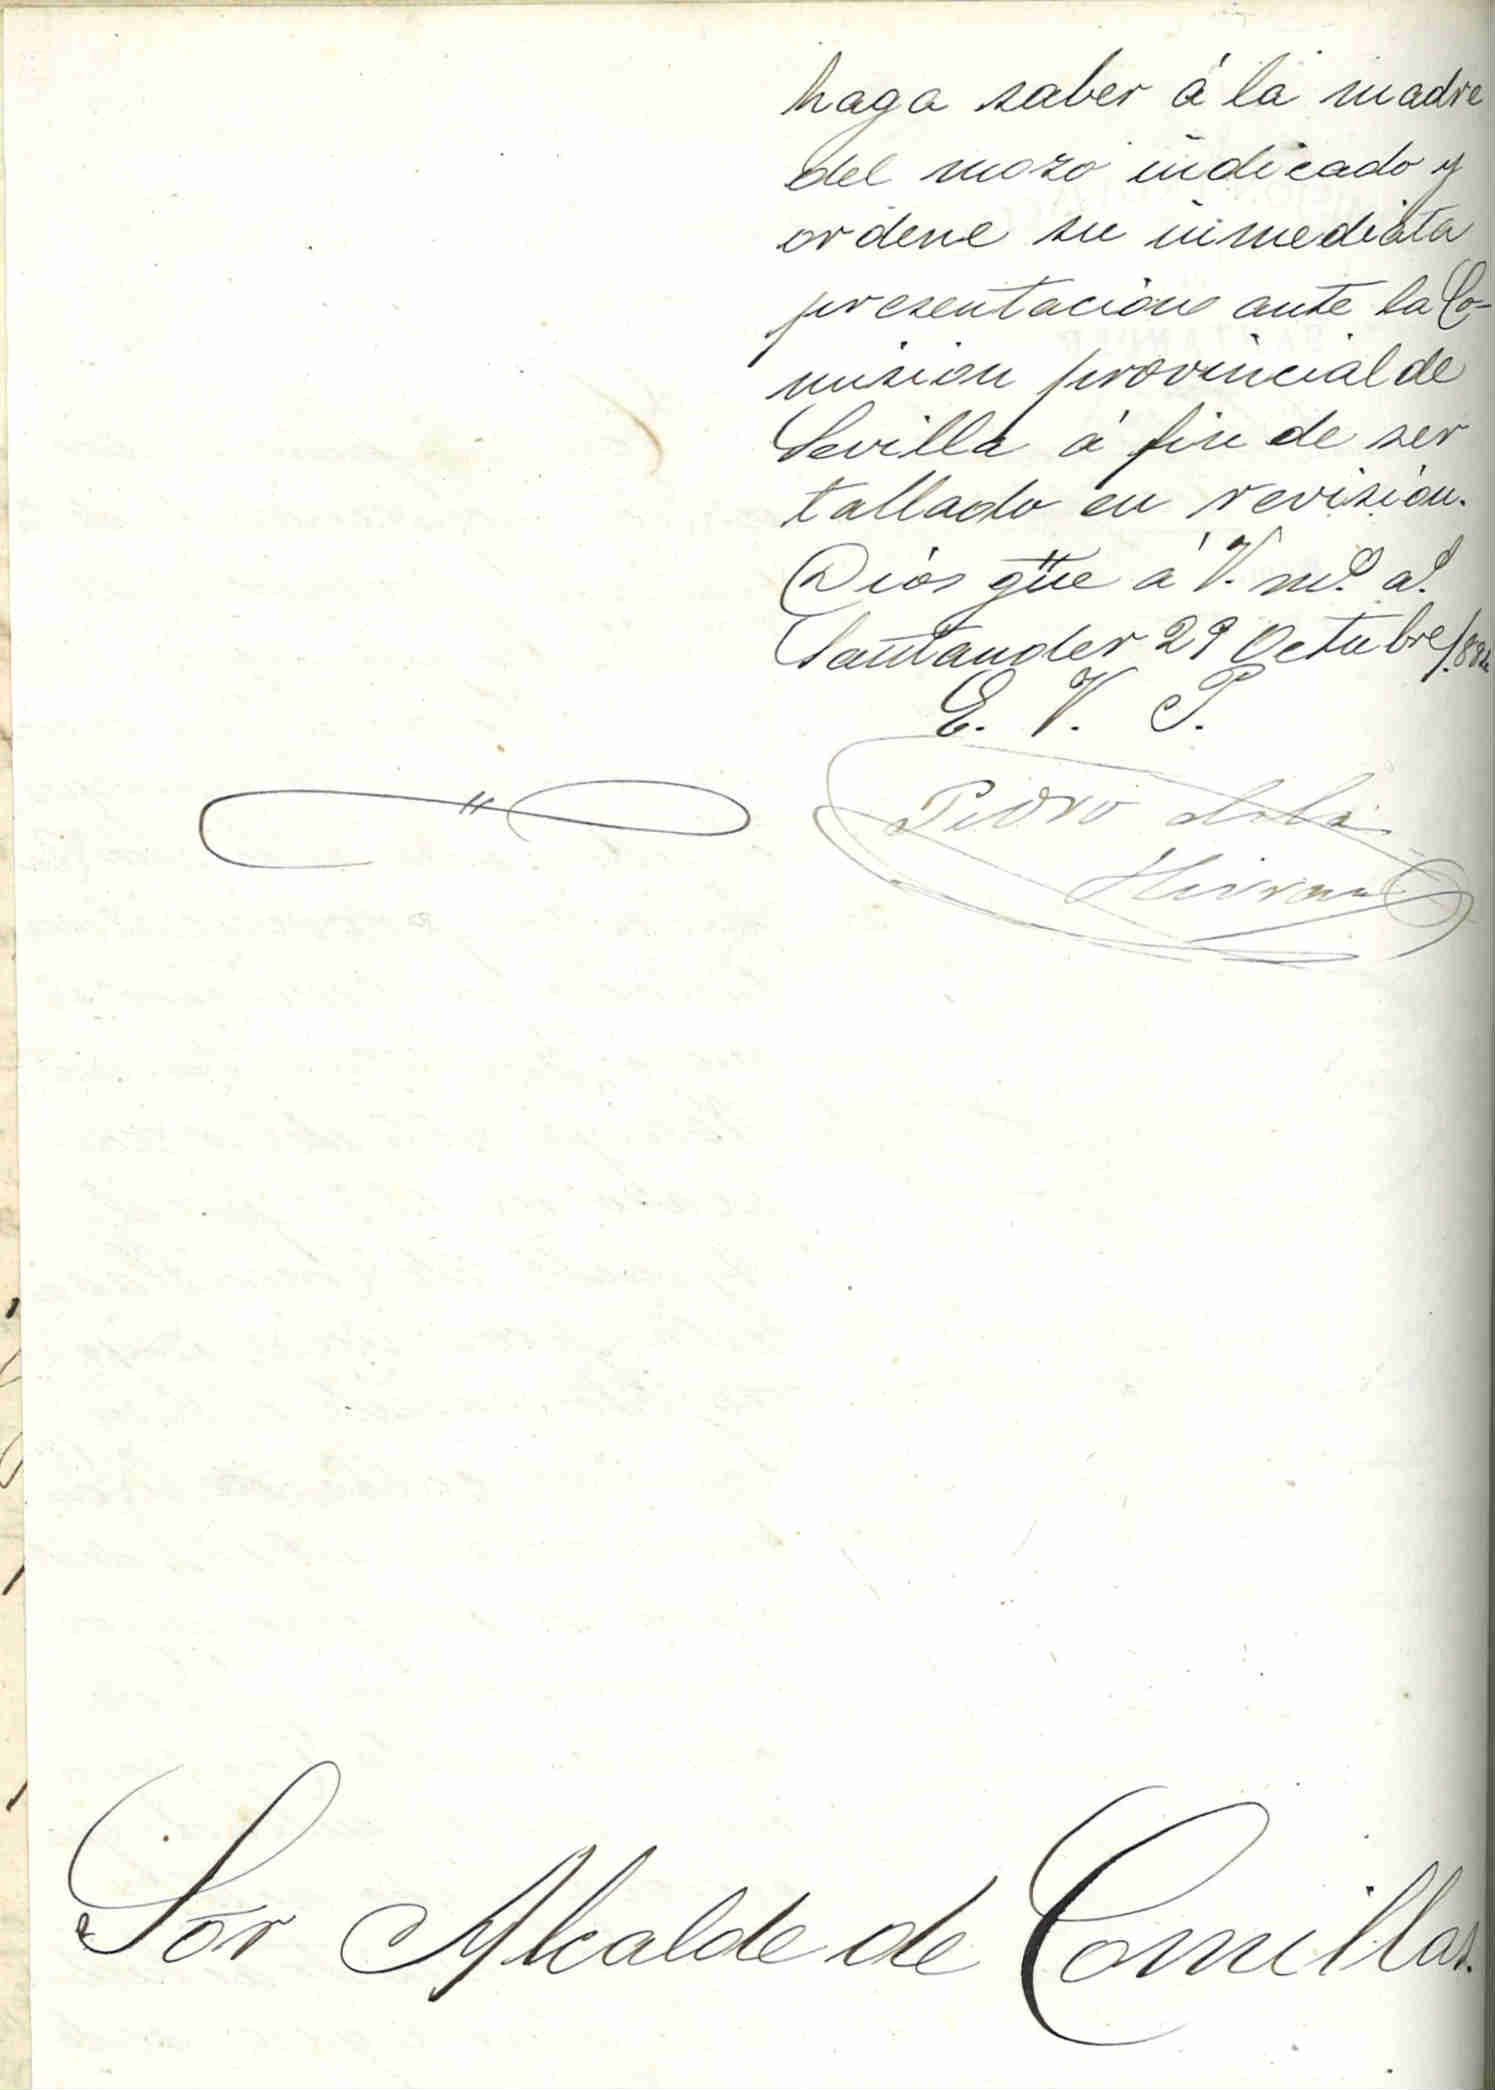 haga saber á la madre
del mozo indicado y
ordene su inmediata
presentación ante la Co-
misión provincial de
Sevilla á fin de ser
tallado en revisión.
Dios güe á V. ms. as.
Santander 29 Octubre/88
E. V. P.
Pedro de la
Sor Alcalde de Comillas.